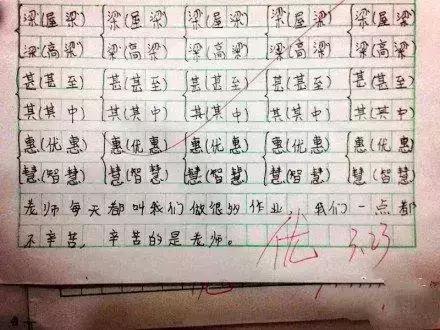 梁(屋梁) 梁(屋梁) 梁(屋梁) 梁(屋梁) 梁(屋梁)
梁(高梁) 梁(高梁) 梁(高梁) 梁(高梁) 梁(高梁)
甚(甚至) 甚(甚至) 甚(甚至) 甚(甚至) 甚(甚至)
其(其中) 其(其中) 其(其中) 其(其中) 其(其中)
惠(优惠) 惠(优惠) 惠(优惠) 惠(优惠) 惠(优惠)
慧(智慧) 慧(智慧) 慧(智慧) 慧(智慧) 慧(智慧)
老师每天都叫我们做很多作业，我们一点都
不辛苦，辛苦的是老师。
优 3.23